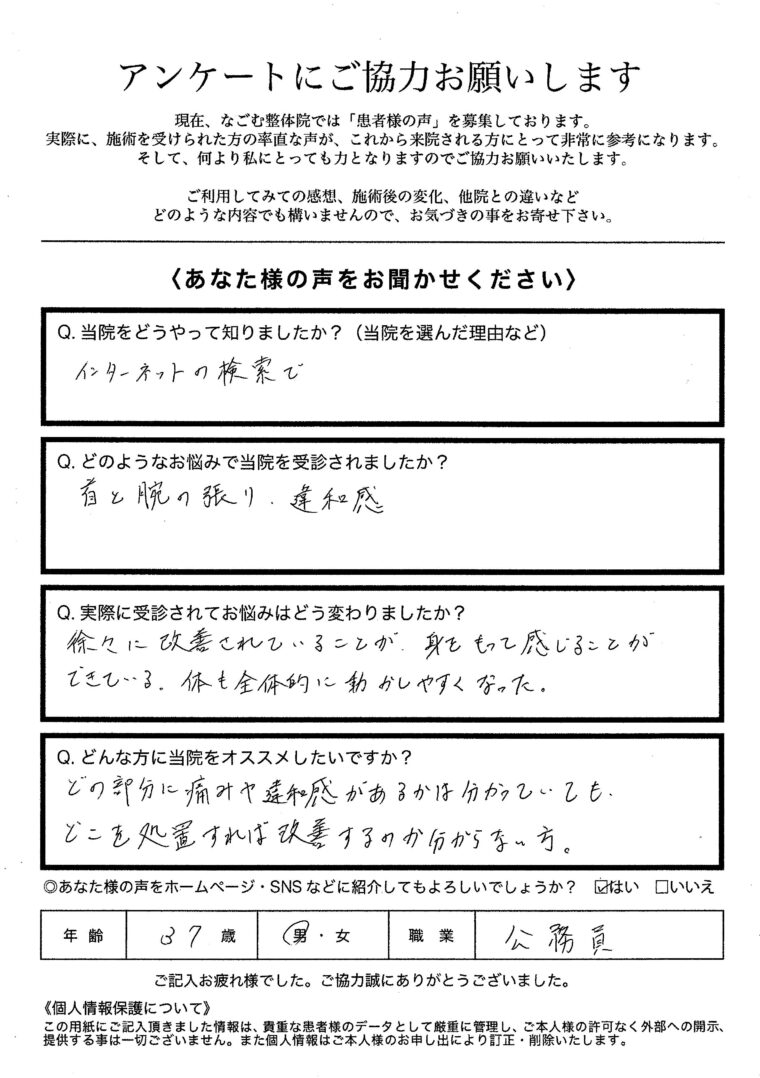 アンケートにご協力お願いします
現在、なごむ整体院では「患者様の声」を募集しております。
実際に、施術を受けられた方の率直な声が、これから来院される方にとって非常に参考になります。
そして、何より私にとっても力となりますのでご協力お願いいたします。
ご利用してみての感想、施術後の変化、他院との違いなど
どのような内容でも構いませんので、お気づきの事をお寄せ下さい。
〈あなた様の声をお聞かせください〉
Q. 当院をどうやって知りましたか？（当院を選んだ理由など）
インターネットの検索で
Q. どのようなお悩みで当院を受診されましたか？
首と腕の張り、違和感
Q. 実際に受診されてお悩みはどう変わりましたか？
徐々に改善されていることが、身をもって感じることが
できている。体も全体的に動かしやすくなった。
Q. どんな方に当院をオススメしたいですか？
どの部分に痛みや違和感があるかは分かっていても、
どこを処置すれば改善するのか分からない方。
◎あなた様の声をホームページ・SNSなどに紹介してもよろしいでしょうか？ ☑はい □いいえ
年齢 37歳 男・女 職業 公務員
ご記入お疲れ様でした。ご協力誠にありがとうございました。
《個人情報保護について》
この用紙にご記入頂きました情報は、貴重な患者様のデータとして厳重に管理し、ご本人様の許可なく外部への開示、
提供する事は一切ございません。また個人情報はご本人様のお申し出により訂正・削除いたします。